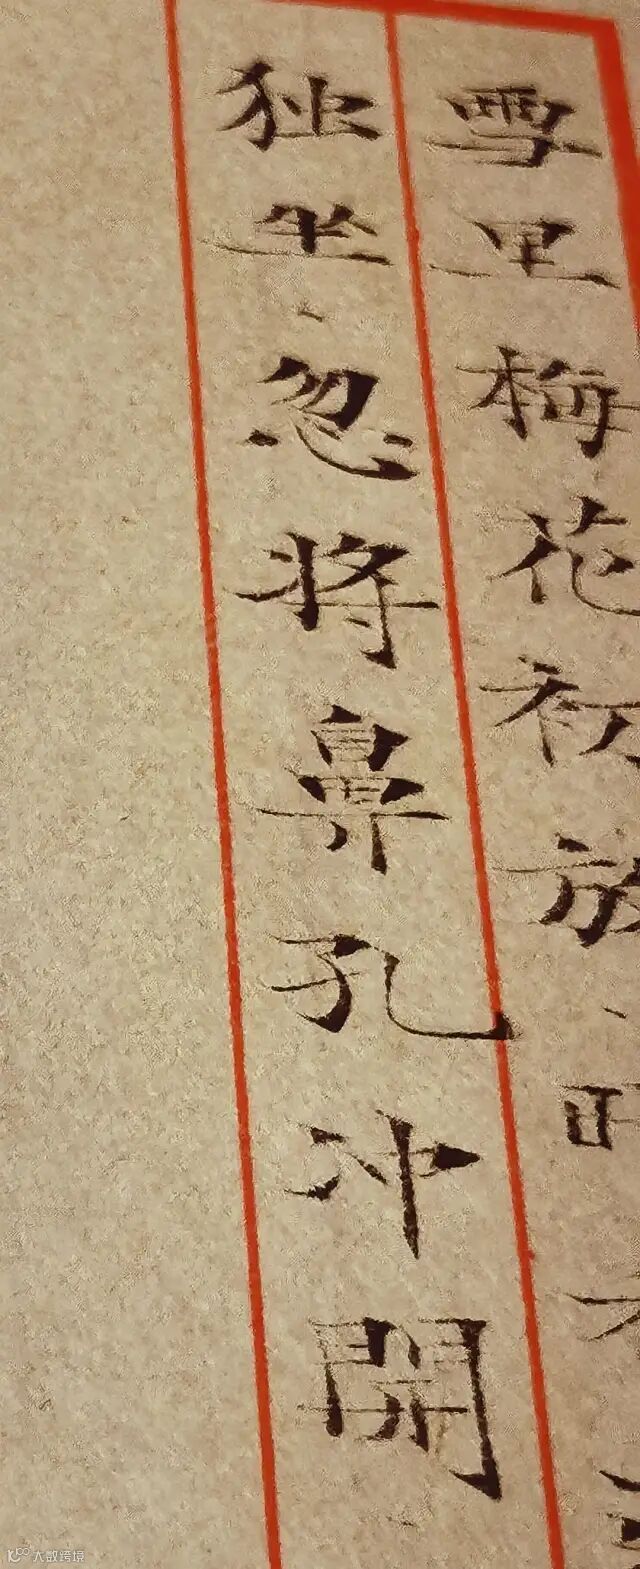 雪里梅花初放
独坐忽将鼻孔冲開
大数跨境